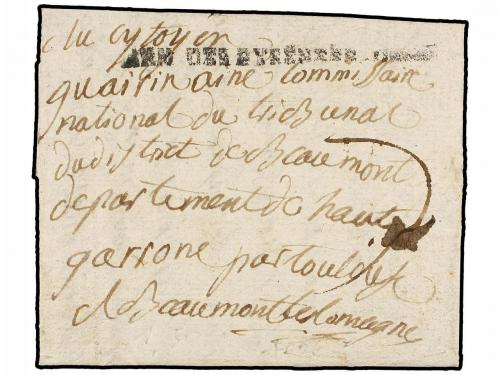 citoyen
ARM DES PYRENEES
quairin ainé commissaire
national du tribunal
du district de Beaumont
departement de haute
garrone par toulouse
a Beaumont de lomagne